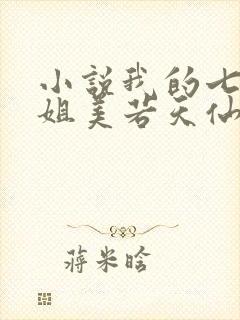 小说我的七
姐美若天仙
蒋米晗